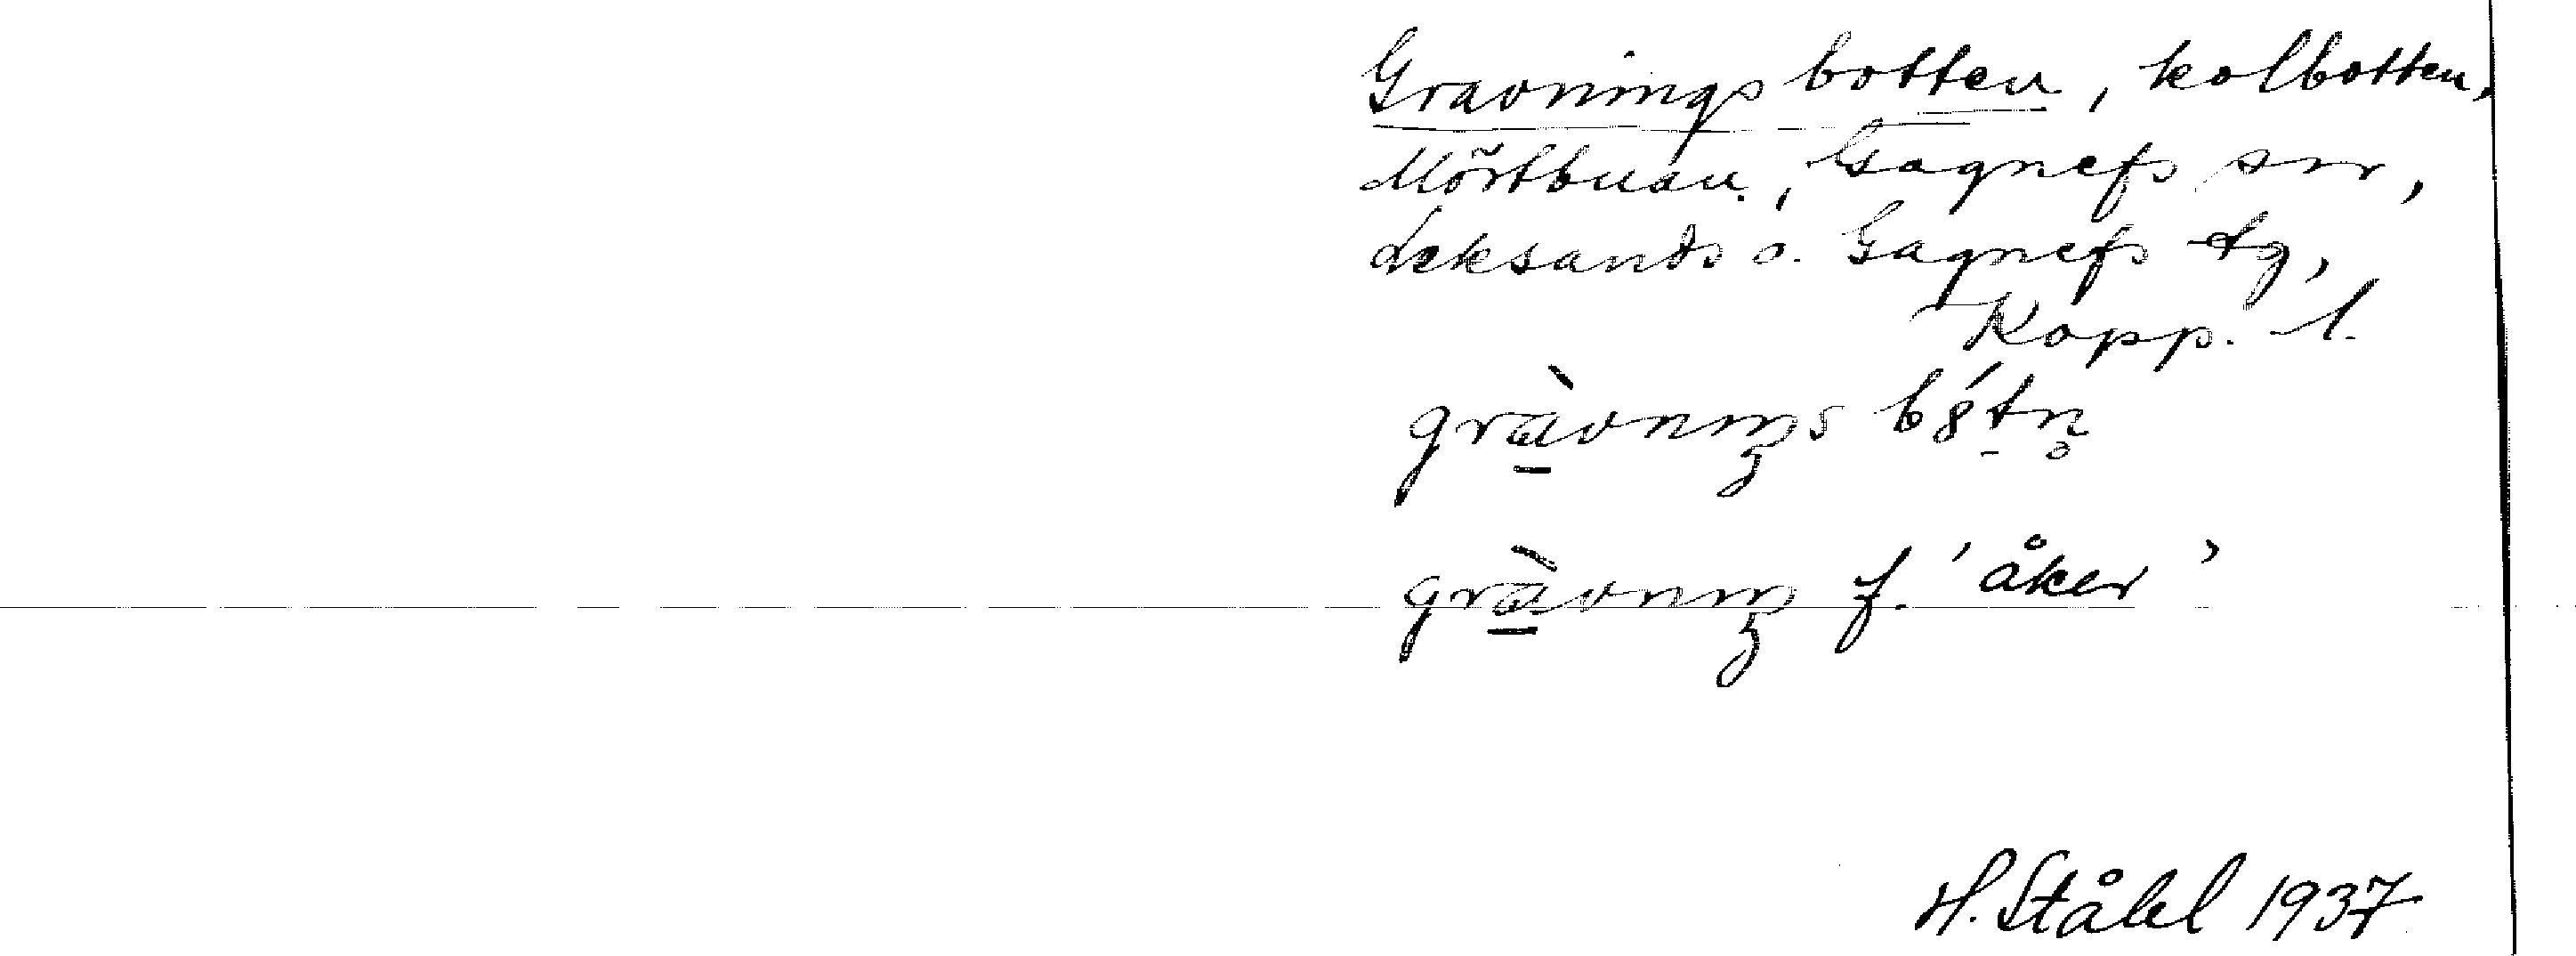 Gravningsbotten, kolbotten,
Mörtbuan, Gagnefs sn,
Leksands o. Gagnefs tg,
Kopp. l.
gràvnıŋs b8́tn̥
gràvnıŋ f. 'åker'
H. Ståhl 1937